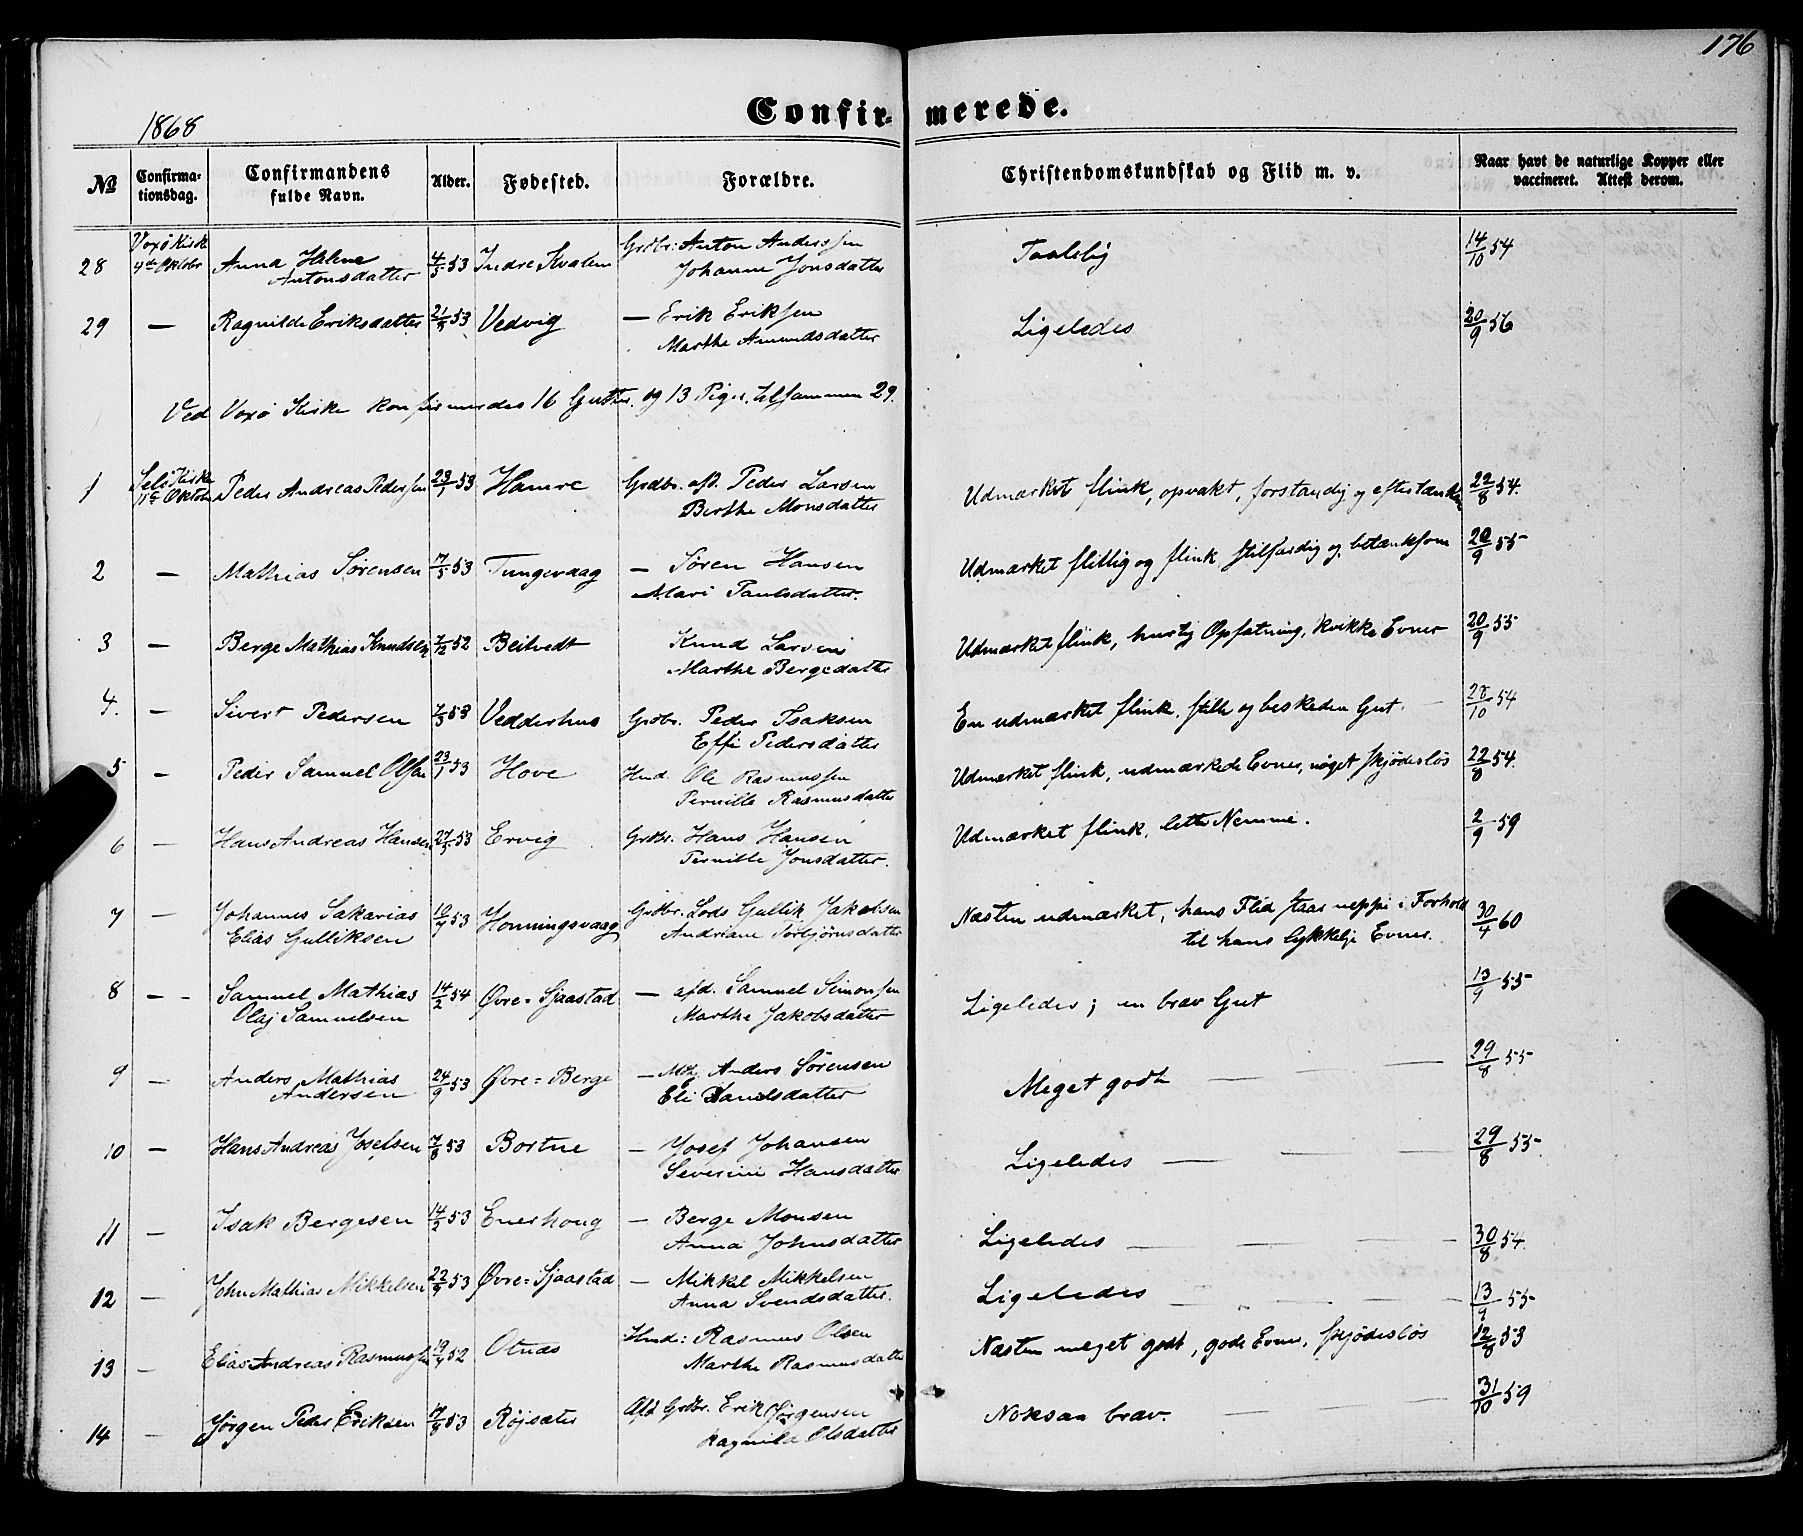 176
Confir- merede.
1868
No Confirma-tionsdag. Confirmandens fulde Navn. Alder. Fødested. Forældre. Christendomskundskab og Flid m. v. Naar havt de naturlige Kopper eller vaccineret. Attest derom.
28 Voxø Kirke 4de Oktobr Anna Helene Antonsdatter 4/5 53 Indre Kvalem Grdbr: Anton Anderssen Johanne Jonsdatter Taalelig 14/10 54
29 — Ragnilde Eriksdatter 21/8 53 Vedvig — Erik Eriksen Marthe Amundsdatter Ligeledes 20/9 56
Ved Voxø Kirke konfirmerdes 16 Gutter og 13 Piger, tilsammen 29.
1 Selje Kirke 11te Oktobr Peder Andreas Pedersen 23/1 53 Hamre Grdbr. afd. Peder Larsen Berthe Monsdatter Udmærket flink, opvakt, forstandig og 22/8 54.
2 — Mathias Sørensen 17/5 53 Tungevaag — Søren Hansen Mari Paulsdatter. Udmærket flittig og flink stilfærdig og betænksom 20/9 55
3 — Berge Mathias Knudsen 7/12 52 Beitvedt Knud Larsen Marthe Bergedatter Udmærket flink, hurtig Opfatning, kvikke Evner 20/9 55
4. — Sivert Pedersen 7/3 53 Vedderhus Grdbr. Peder Isaksen Effi Pedersdatter En udmærket flink, stille og beskeden Gut. 28/10 54
5 — Peder Samuel Olsen 23/1 53 Hove Hmd. Ole Rasmussen Pernille Rasmusdatter Udmærket flink, udmærkede Evner, noget skjødesløs 22/8 54.
6 — Hans Andreas Hansen 27/5 53 Ervig Grdbr. Hans Hansen Pernille Jonsdatter. Udmærket flink, lette Nemme. 2/9 59
7 — Johannes Sakarias Elias Gulliksen 19/7 53 Honningsvaag Grdbr. Lods Gullik Jakobsen Andriane Torbjørnsdatter Næsten udmærket, hans Flid staar neppe i Forhold til hans lykkelige Evner. 30/4 60
8 — - Samuel Mathias Olaj Samuelsen 14/2 54 Øvre-Sjaastad — afd. Samuel Simonsen Marthe Jakobsdatter Ligeledes; en brav Gut 13/9 55
9 — Anders Mathias Andersen 24/9 53 Øvre-Berge — Anders Sørensen Eli Meget godt — — 29/8 55
10 — Hans Andreas Josefsen 7/8 53 Bortne — Josef Johansen Severine Hansdatter Ligeledes — — 29/8 55
11 — Isak Bergesen 14/2 53 Enerhoug — Berge Monsen Anna Johnsdatter Ligeledes — — 30/8 54.
12 — John Mathias Mikkelsen 22/9 53 Øvre-Sjaastad — Mikkel Mikkelsen Anna Svendsdatter. Ligeledes — — 13/9 55
13 — Elias Andreas Rasmussen 19/4 52 Otnæs Hmd: Rasmus Olsen Marthe Rasmusdatter Næsten meget godt, gode Evner, skjødesløs 12/8 53
14 — Jørgen Peder Eriksen 17/8 53 Røjsæter Afd Grdbr. Erik Jørgensen Ragnilde Olsdatter Noksaa brav. — — 31/10 59